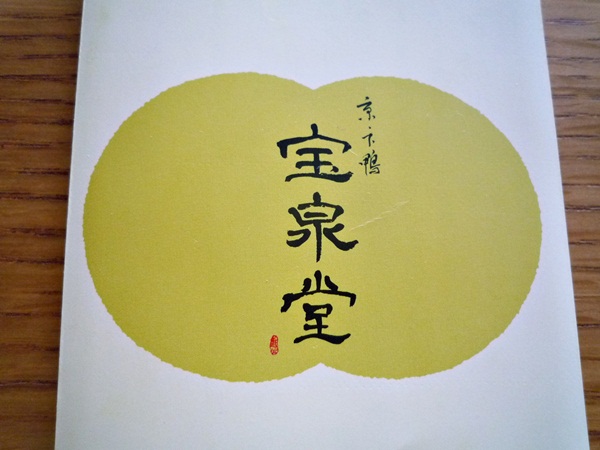 京下鴨
宝泉堂